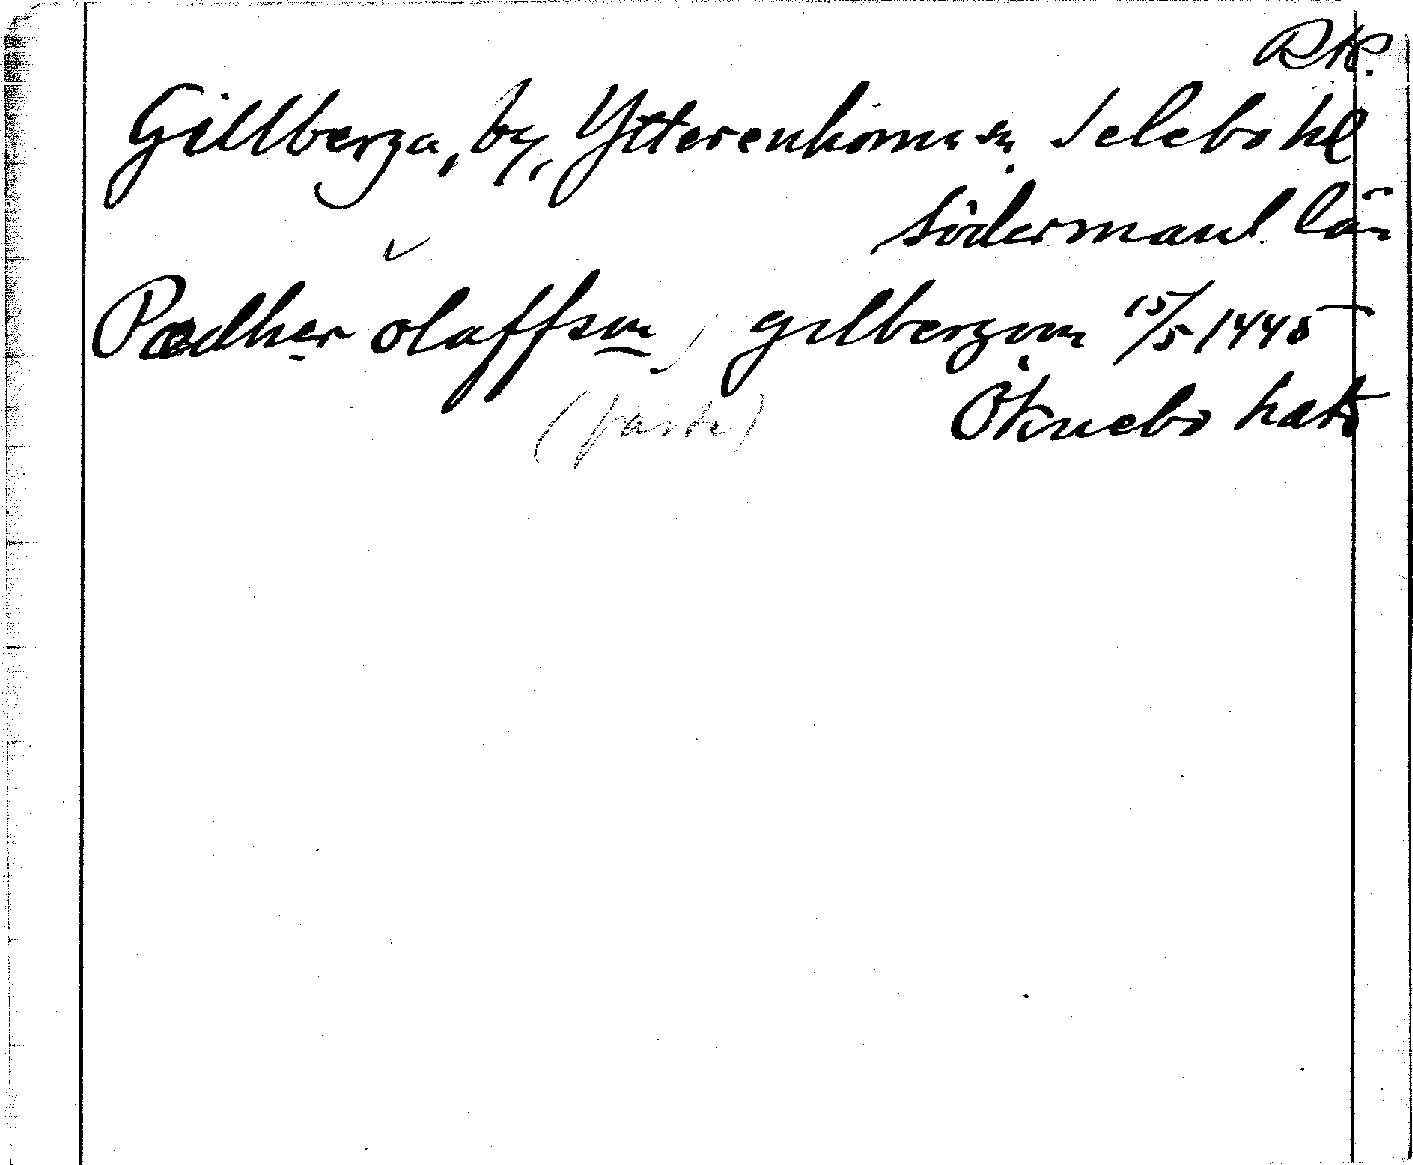 RK.
Gillberga, by, Ytterenhörna sn. Selebo hd
Södermanl län
Pædher olaffson, gilbergom 15/5 1445
Öknebo hæt